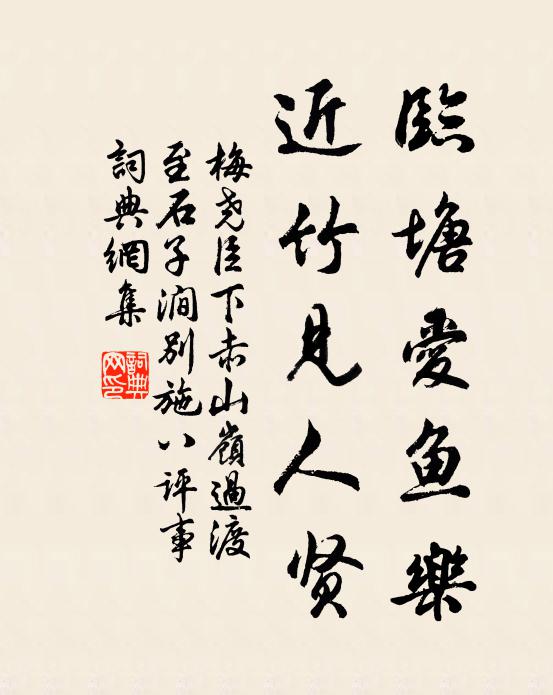 臨塘愛鱼樂
近竹见人贤
梅尧臣下赤山嶺過渡
至石子澗别施八评事
詞典網集
詞典
网印